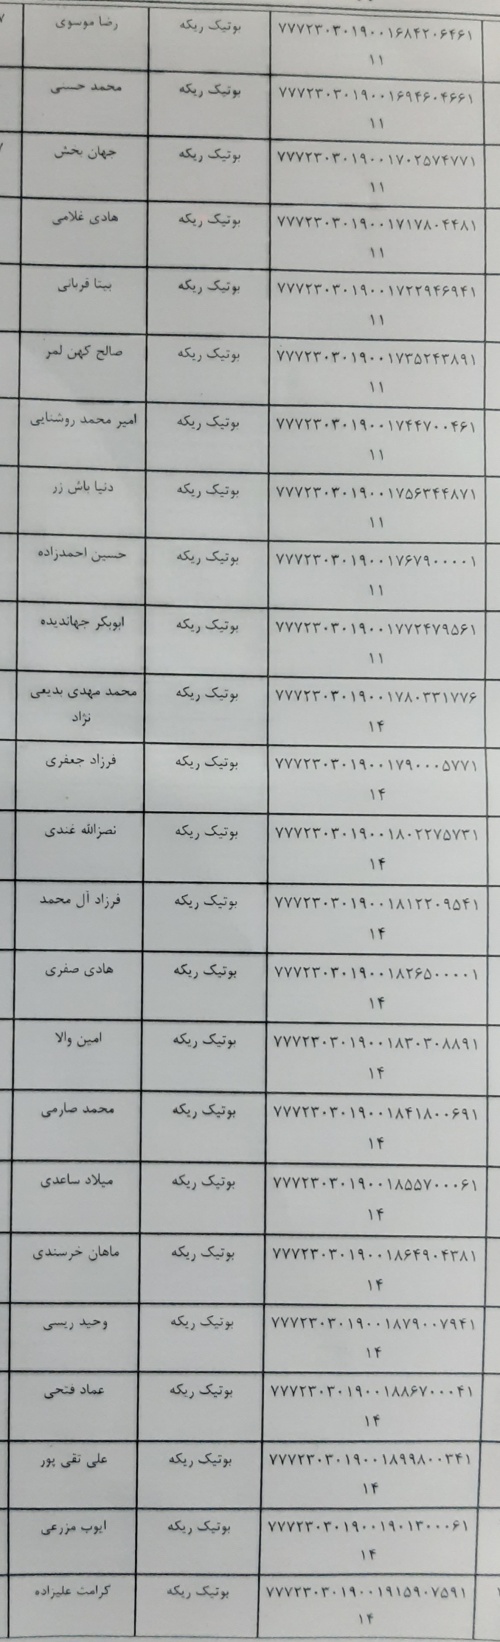 رضا موسوی بوتیک ریکه ۷۷۷۲۳۰۳۰۱۹۰۰۱۶۸۴۲۰۶۴۶۱
۱۱
محمد حسنی بوتیک ریکه ۷۷۷۲۳۰۳۰۱۹۰۰۱۶۹۴۶۰۴۶۶۱
۱۱
جهان بخش بوتیک ریکه ۷۷۷۲۳۰۳۰۱۹۰۰۱۷۰۲۵۷۴۷۷۱
۱۱
هادی غلامی بوتیک ریکه ۷۷۷۲۳۰۳۰۱۹۰۰۱۷۱۷۸۰۴۴۸۱
۱۱
بینا قربانی بوتیک ریکه ۷۷۷۲۳۰۳۰۱۹۰۰۱۷۲۲۹۴۶۹۴۱
۱۱
صالح کهن لمر بوتیک ریکه ۷۷۷۲۳۰۳۰۱۹۰۰۱۷۳۵۲۴۳۸۹۱
۱۱
امیر محمد روشنایی بوتیک ریکه ۷۷۷۲۳۰۳۰۱۹۰۰۱۷۴۴۷۰۰۴۶۱
۱۱
دنیا باش زر بوتیک ریکه ۷۷۷۲۳۰۳۰۱۹۰۰۱۷۵۶۳۴۴۸۷۱
۱۱
حسین احمدزاده بوتیک ریکه ۷۷۷۲۳۰۳۰۱۹۰۰۱۷۶۷۹۰۰۰۰۱
۱۱
ابوبکر جهاندیده بوتیک ریکه ۷۷۷۲۳۰۳۰۱۹۰۰۱۷۷۲۴۷۹۵۶۱
۱۱
محمد مهدی بدیعی بوتیک ریکه ۷۷۷۲۳۰۳۰۱۹۰۰۱۷۸۰۳۳۱۷۷۶
نژاد ۱۴
فرزاد جعفری بوتیک ریکه ۷۷۷۲۳۰۳۰۱۹۰۰۱۷۹۰۰۰۵۷۷۱
۱۴
نصرالله غندی بوتیک ریکه ۷۷۷۲۳۰۳۰۱۹۰۰۱۸۰۲۲۷۵۷۳۱
۱۴
فرزاد آل محمد بوتیک ریکه ۷۷۷۲۳۰۳۰۱۹۰۰۱۸۱۲۲۰۹۵۴۱
۱۴
هادی صفری بوتیک ریکه ۷۷۷۲۳۰۳۰۱۹۰۰۱۸۲۶۵۰۰۰۰۱
۱۴
امین والا بوتیک ریکه ۷۷۷۲۳۰۳۰۱۹۰۰۱۸۳۰۳۰۸۸۹۱
۱۴
محمد صارمی بوتیک ریکه ۷۷۷۲۳۰۳۰۱۹۰۰۱۸۴۱۸۰۰۶۹۱
۱۴
میلاد ساعدی بوتیک ریکه ۷۷۷۲۳۰۳۰۱۹۰۰۱۸۵۵۷۰۰۰۶۱
۱۴
ماهان خرسندی بوتیک ریکه ۷۷۷۲۳۰۳۰۱۹۰۰۱۸۶۴۹۰۴۳۸۱
۱۴
وحید ریسی بوتیک ریکه ۷۷۷۲۳۰۳۰۱۹۰۰۱۸۷۹۰۰۷۹۴۱
۱۴
عماد فتحی بوتیک ریکه ۷۷۷۲۳۰۳۰۱۹۰۰۱۸۸۶۷۰۰۰۴۱
۱۴
علی تقی پور بوتیک ریکه ۷۷۷۲۳۰۳۰۱۹۰۰۱۸۹۹۸۰۰۳۴۱
۱۴
ایوب مزرعی بوتیک ریکه ۷۷۷۲۳۰۳۰۱۹۰۰۱۹۰۱۳۰۰۰۶۱
۱۴
کرامت علیزاده بوتیک ریکه ۷۷۷۲۳۰۳۰۱۹۰۰۱۹۱۵۹۰۷۵۹۱
۱۴